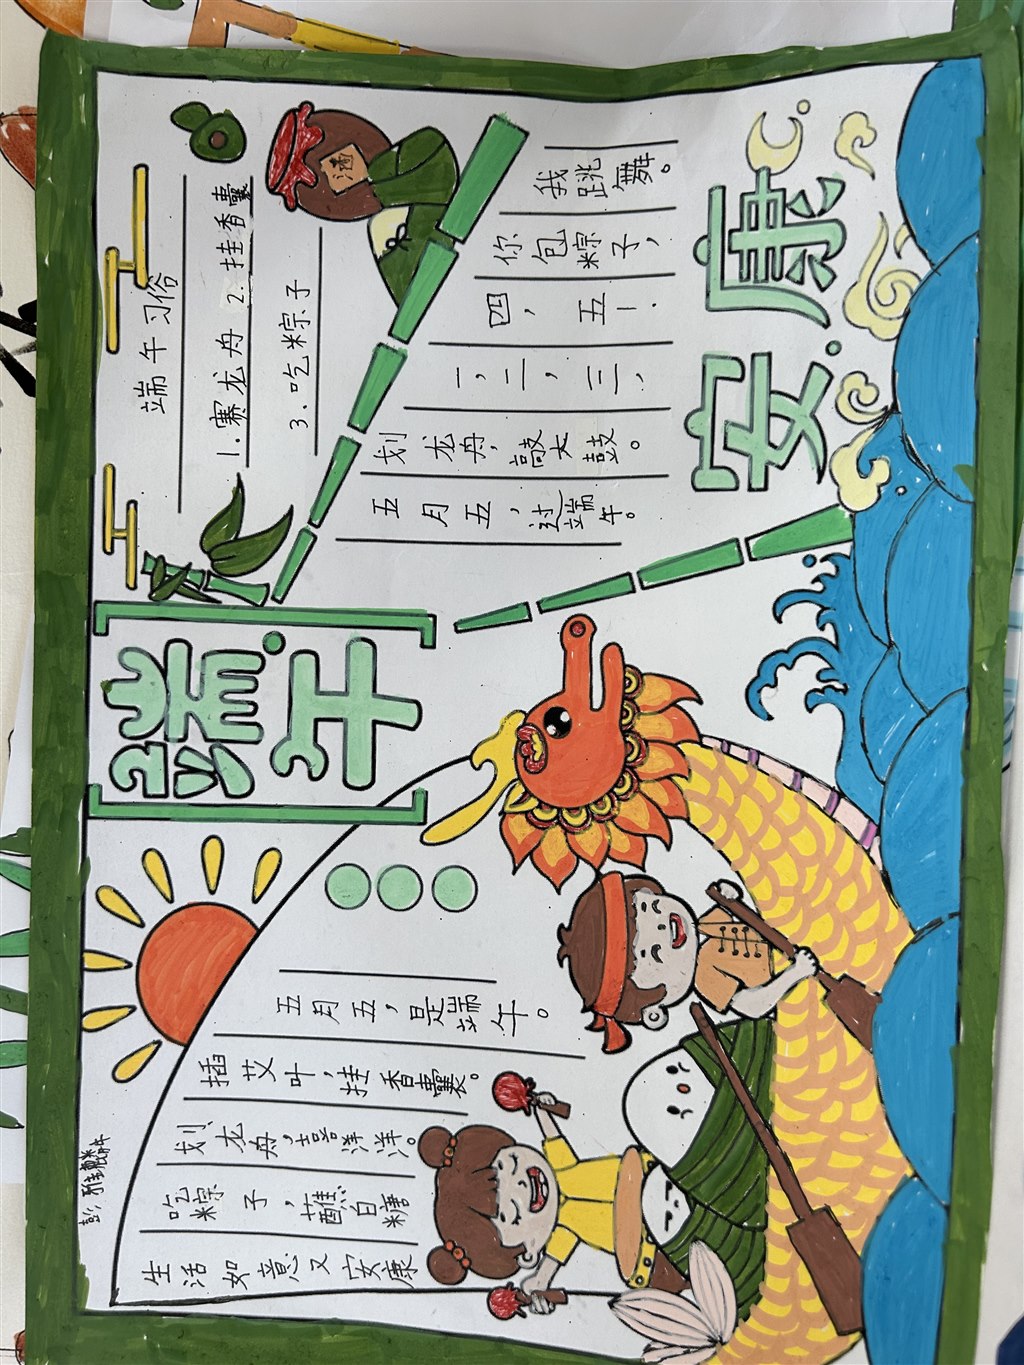 五月五，是端午。
插艾叶，挂香囊。
划龙舟，喜洋洋。
吃粽子，蘸白糖
生活如意又安康
端午
端午习俗
1.赛龙舟 2.挂香囊
3.吃粽子
酒
五月五，过端午。
划龙舟，敲大鼓。
一，二，三，
四，五！
你包粽子，
我跳舞。
安康